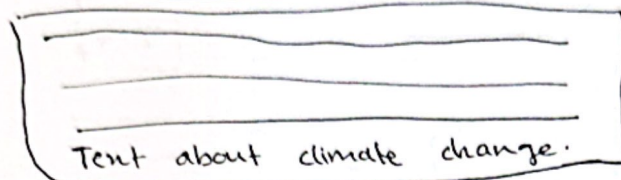 Text about climate change.